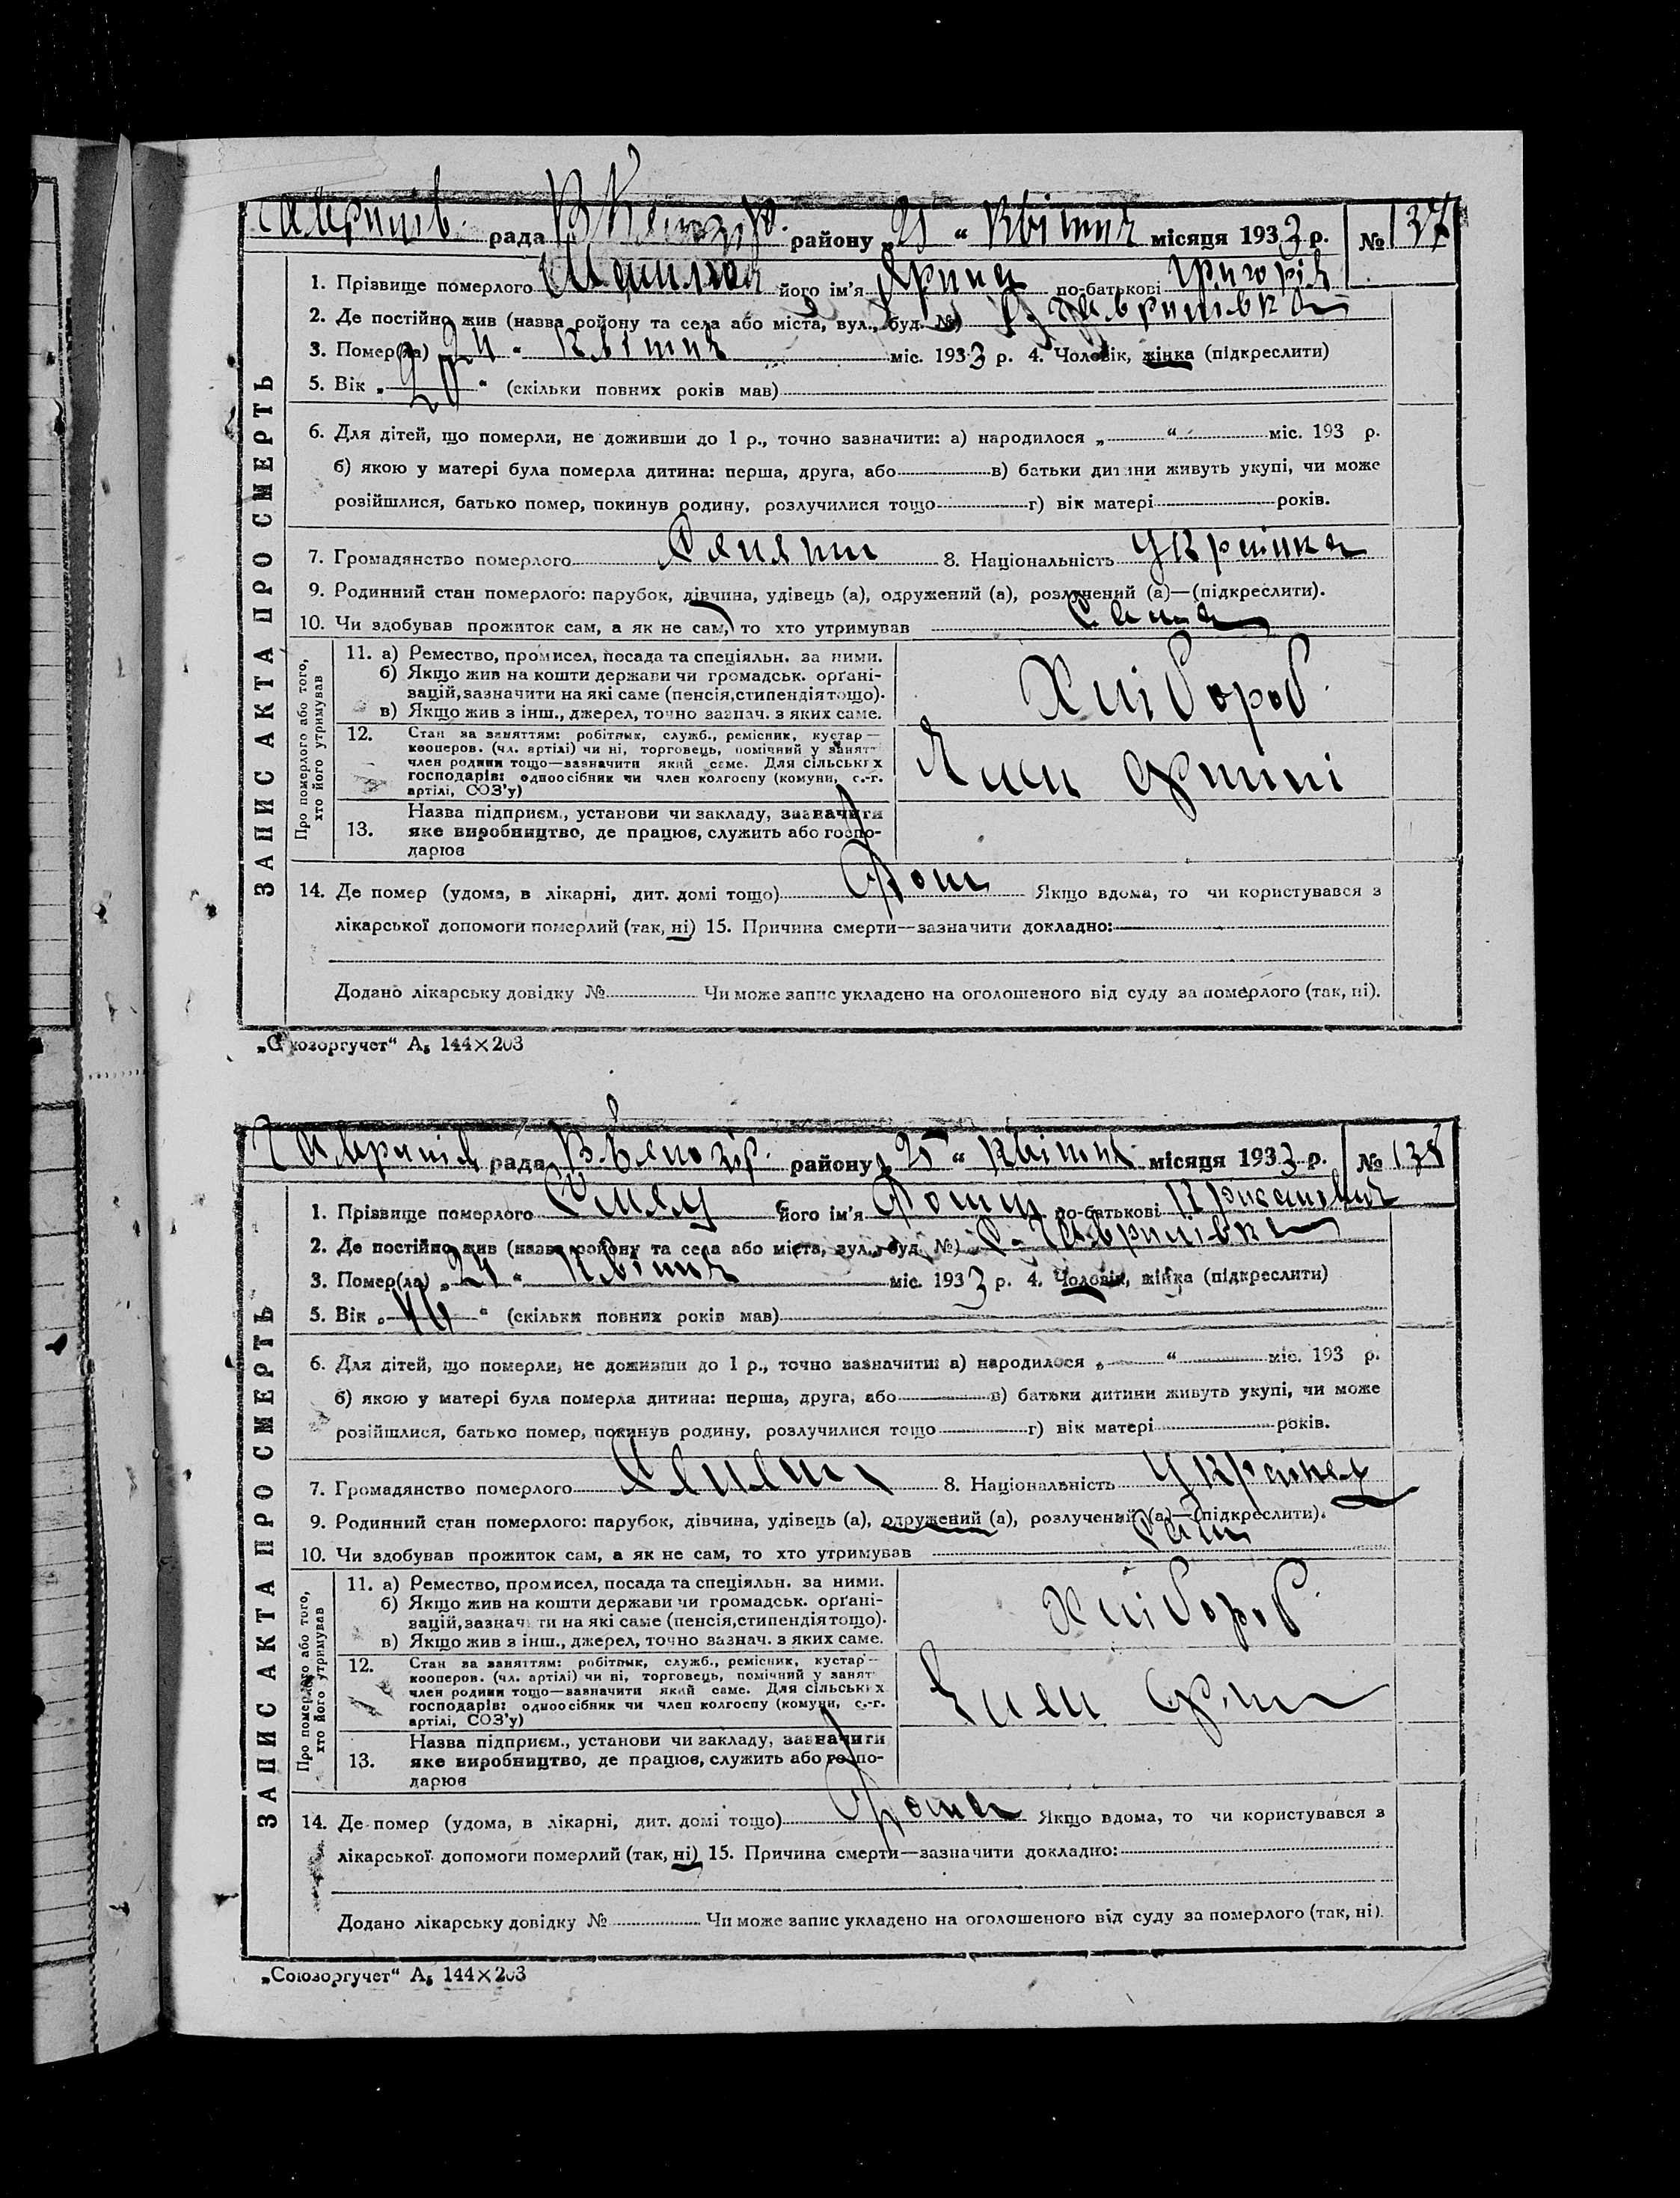 рада району „25“ Квітня місяця 1933 р. № 137
1. Прізвище померлого його ім'я Ярина по-батькові Григорів
2. Де постійно жив (назва району та села або міста, вул., буд. №) Гавришівка
3. Помер(ла) „24“ Квітня міс. 1933 р. 4. Чоловік, жінка (підкреслити)
5. Вік „ “ (скільки повних років мав)
6. Для дітей, що померли, не доживши до 1 р., точно зазначити: а) народилося „ “ міс. 193 р.
б) якою у матері була померла дитина: перша, друга, або в) батьки дитини живуть укупі, чи може
розійшлися, батько помер, покинув родину, розлучилися тощо г) вік матері років.
7. Громадянство померлого 8. Національність Українка
9. Родинний стан померлого: парубок, дівчина, удівець (а), одружений (а), розлучений (а)—(підкреслити).
10. Чи здобував прожиток сам, а як не сам, то хто утримував Сама
ЗАПИС АКТА ПРО СМЕРТЬ
Про померлого або того,
хто його утримував
11. а) Ремество, промисел, посада та спеціяльн. за ними.
б) Якщо жив на кошти держави чи громадськ. орґані-
зацій, зазначити на які саме (пенсія, стипендія тощо).
в) Якщо жив з інш., джерел, точно зазнач. з яких саме.
Хлібороб
12. Стан за заняттям: робітник, служб., ремісник, кустар—
кооперов. (чл. артілі) чи ні, торговець, помічний у занятт
член родини тощо—зазначити який саме. Для сільських
господарів: одноосібник чи член колгоспу (комуни, с.-г.
артілі, СОЗ'у)
Член Артілі
13. Назва підприєм., установи чи закладу, зазначити
яке виробництво, де працює, служить або госпо-
дарює
14. Де помер (удома, в лікарні, дит. домі тощо) Дома Якщо вдома, то чи користувався з
лікарської допомоги померлий (так, ні) 15. Причина смерти—зазначити докладно:
Додано лікарську довідку № Чи може запис укладено на оголошеного від суду за померлого (так, ні).
„Союзоргучет“ А₅ 144×203
Гавришів рада району „25“ Квітня місяця 1933 р. № 138
1. Прізвище померлого його ім'я по-батькові
2. Де постійно жив (назва району та села або міста, вул., буд. №) с. Гавришівка
3. Помер(ла) „24“ Квітня міс. 1933 р. 4. Чоловік, жінка (підкреслити)
5. Вік „ “ (скільки повних років мав)
6. Для дітей, що померли, не доживши до 1 р., точно зазначити: а) народилося „ “ міс. 193 р.
б) якою у матері була померла дитина: перша, друга, або в) батьки дитини живуть укупі, чи може
розійшлися, батько помер, покинув родину, розлучилися тощо г) вік матері років.
7. Громадянство померлого 8. Національність Українец
9. Родинний стан померлого: парубок, дівчина, удівець (а), одружений (а), розлучений (а)—(підкреслити).
10. Чи здобував прожиток сам, а як не сам, то хто утримував Сам
ЗАПИС АКТА ПРО СМЕРТЬ
Про померлого або того,
хто його утримував
11. а) Ремество, промисел, посада та спеціяльн. за ними.
б) Якщо жив на кошти держави чи громадськ. орґані-
зацій, зазначити на які саме (пенсія, стипендія тощо).
в) Якщо жив з інш., джерел, точно зазнач. з яких саме.
Хлібороб
12. Стан за заняттям: робітник, служб., ремісник, кустар—
кооперов. (чл. артілі) чи ні, торговець, помічний у занят
член родини тощо—зазначити який саме. Для сільських
господарів: одноосібник чи член колгоспу (комуни, с.-г.
артілі, СОЗ'у)
Член
13. Назва підприєм., установи чи закладу, зазначити
яке виробництво, де працює, служить або госпо-
дарює
14. Де помер (удома, в лікарні, дит. домі тощо) Дома Якщо вдома, то чи користувався з
лікарської допомоги померлий (так, ні) 15. Причина смерти—зазначити докладно:
Додано лікарську довідку № Чи може запис укладено на оголошеного від суду за померлого (так, ні).
„Союзоргучет“ А₅ 144×203